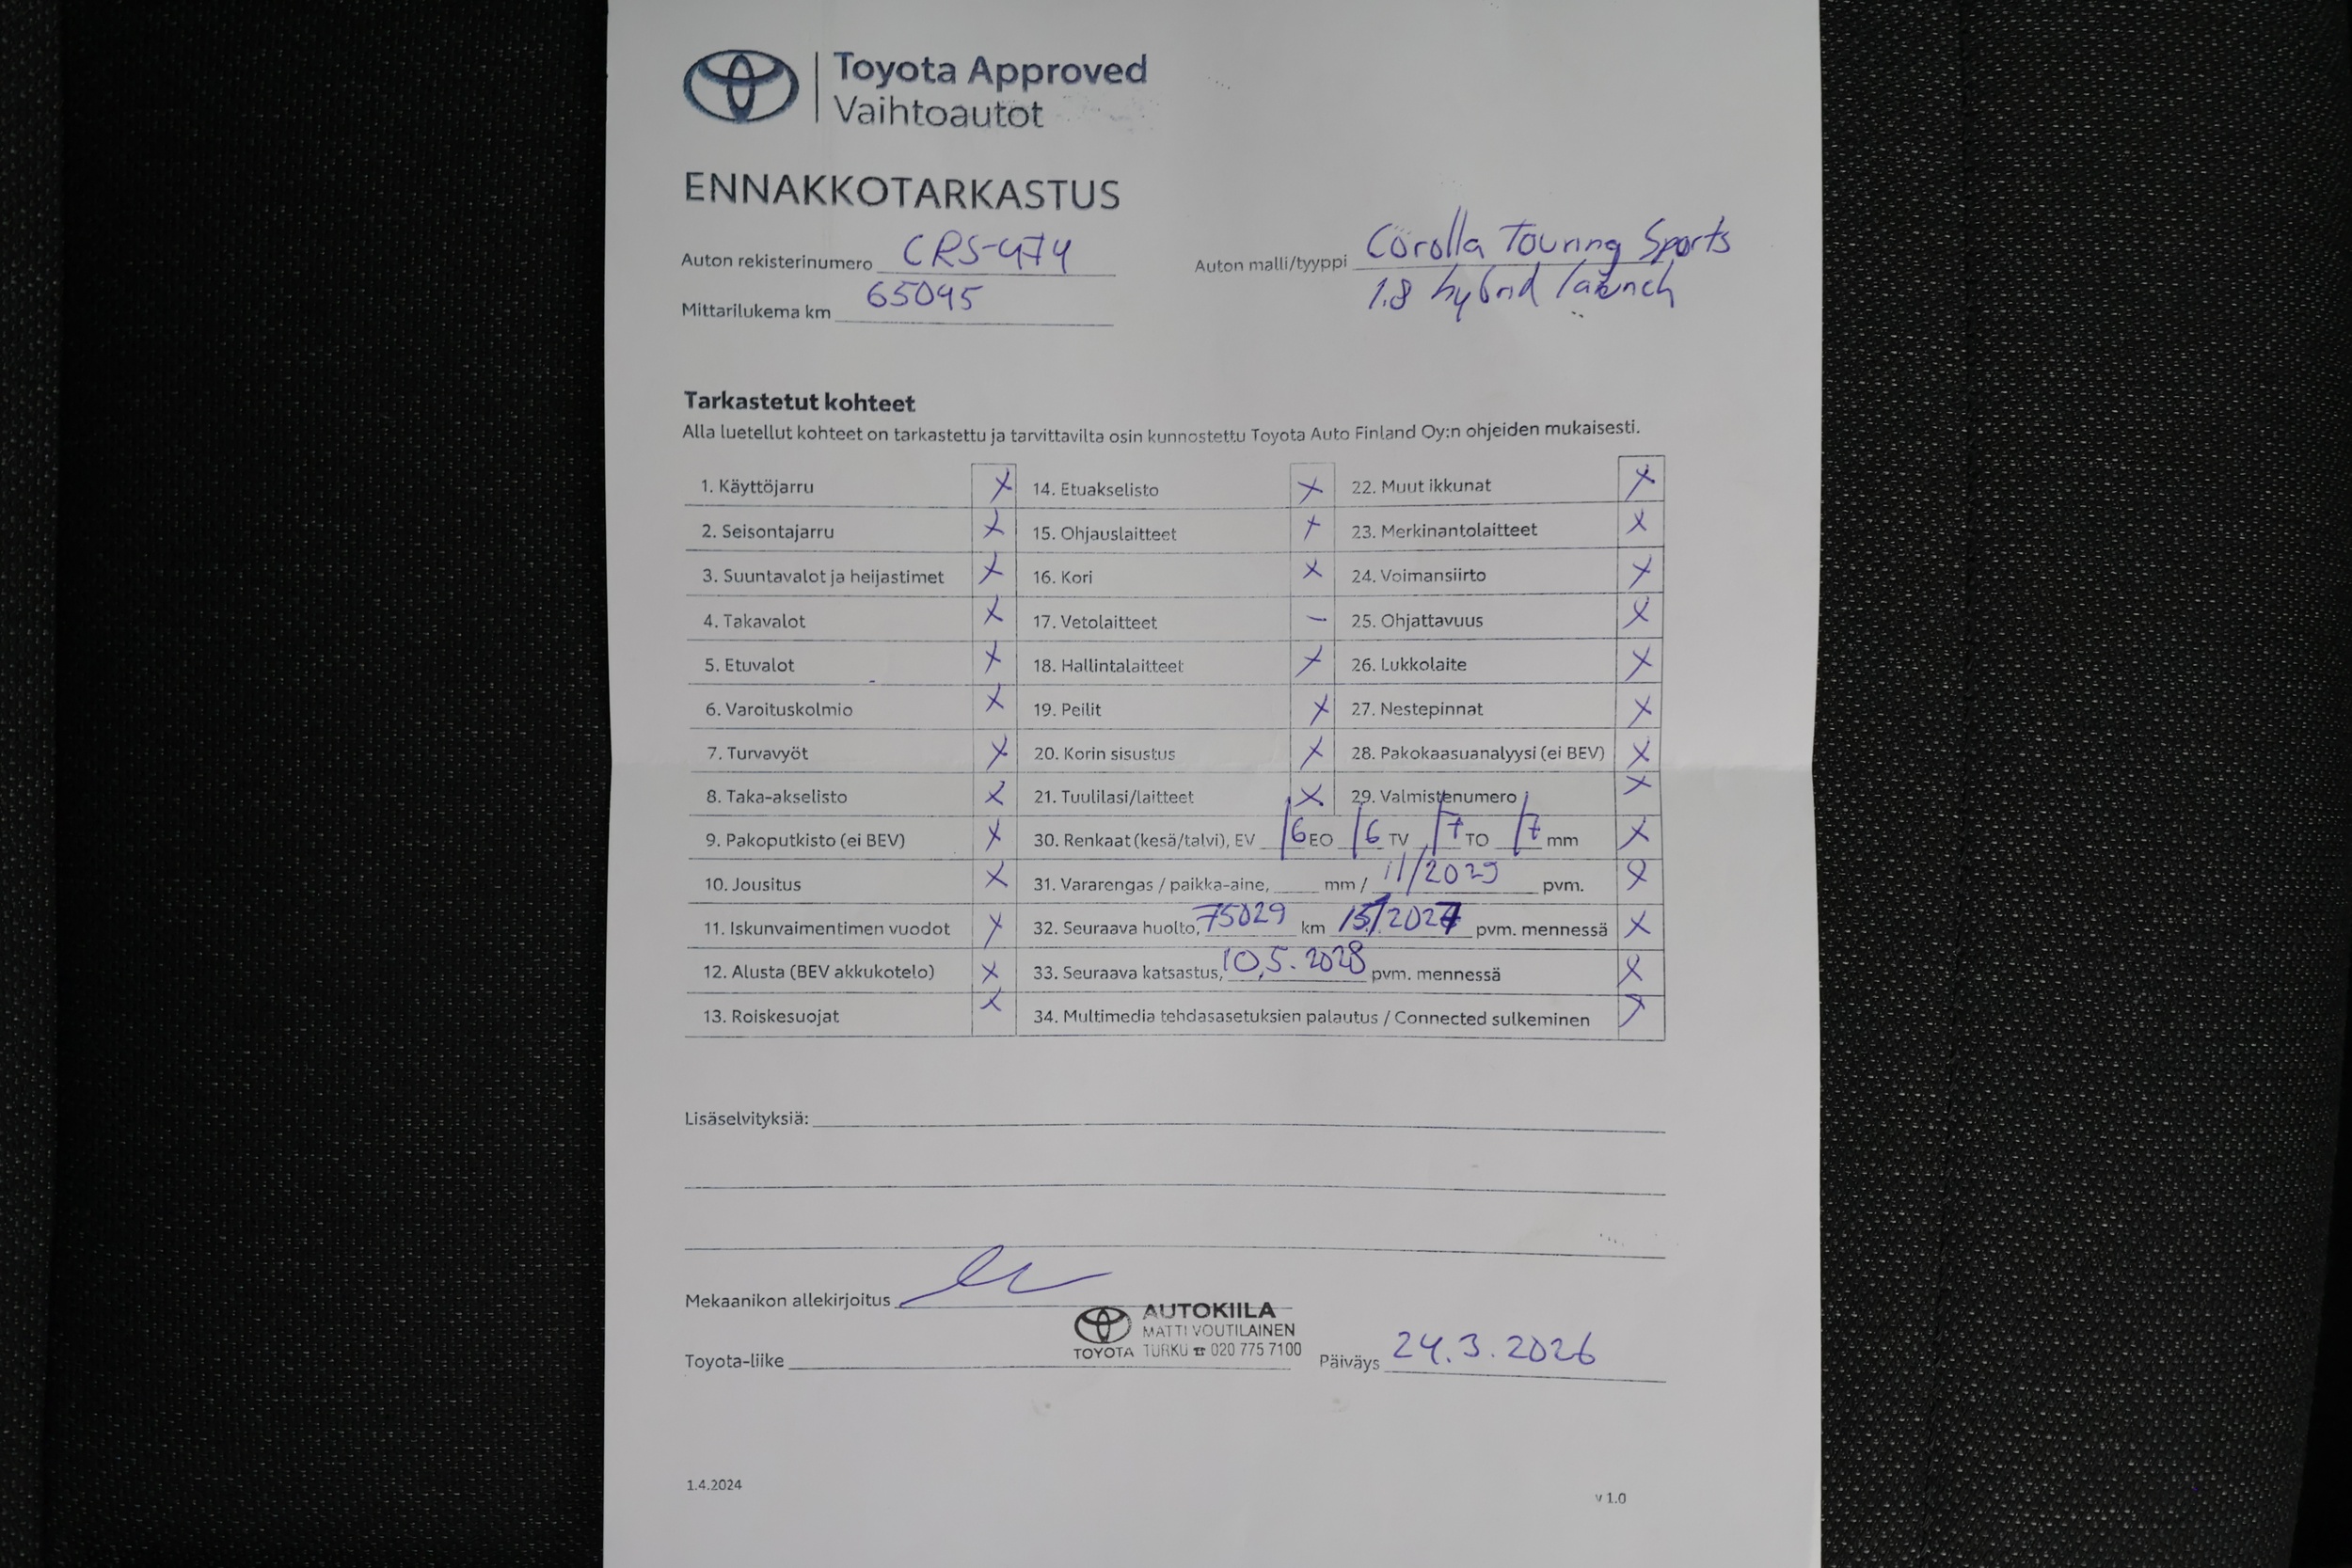 Toyota Approved
Vaihtoautot
ENNAKKOTARKASTUS
Auton rekisterinumero CRS-474
Auton malli/tyyppi Corolla Touring Sports
1.8 hybrid launch
Mittarilukema km 65095
Tarkastetut kohteet
Alla luetellut kohteet on tarkastettu ja tarvittavilta osin kunnostettu Toyota Auto Finland Oy:n ohjeiden mukaisesti.
1. Käyttöjarru X 14. Etuakselisto X 22. Muut ikkunat X
2. Seisontajarru X 15. Ohjauslaitteet X 23. Merkinantolaitteet X
3. Suuntavalot ja heijastimet X 16. Kori X 24. Voimansiirto X
4. Takavalot X 17. Vetolaitteet – 25. Ohjattavuus X
5. Etuvalot X 18. Hallintalaitteet X 26. Lukkolaite X
6. Varoituskolmio X 19. Peilit X 27. Nestepinnat X
7. Turvavyöt X 20. Korin sisustus X 28. Pakokaasuanalyysi (ei BEV) X
8. Taka-akselisto X 21. Tuulilasi/laitteet X 29. Valmistenumero X
9. Pakoputkisto (ei BEV) X 30. Renkaat (kesä/talvi), EV /6 EO /6 TV /7 TO /7 mm X
10. Jousitus X 31. Vararengas / paikka-aine, mm / 11/2029 pvm. X
11. Iskunvaimentimen vuodot X 32. Seuraava huolto, 75029 km /2027 pvm. mennessä X
12. Alusta (BEV akkukotelo) X 33. Seuraava katsastus, 10.5.2028 pvm. mennessä X
13. Roiskesuojat X 34. Multimedia tehdasasetuksien palautus / Connected sulkeminen X
Lisäselvityksiä:
Mekaanikon allekirjoitus
AUTOKIILA
MATTI VOUTILAINEN
TOYOTA TURKU ☎ 020 775 7100
Toyota-liike
Päiväys 24.3.2026
1.4.2024
v 1.0